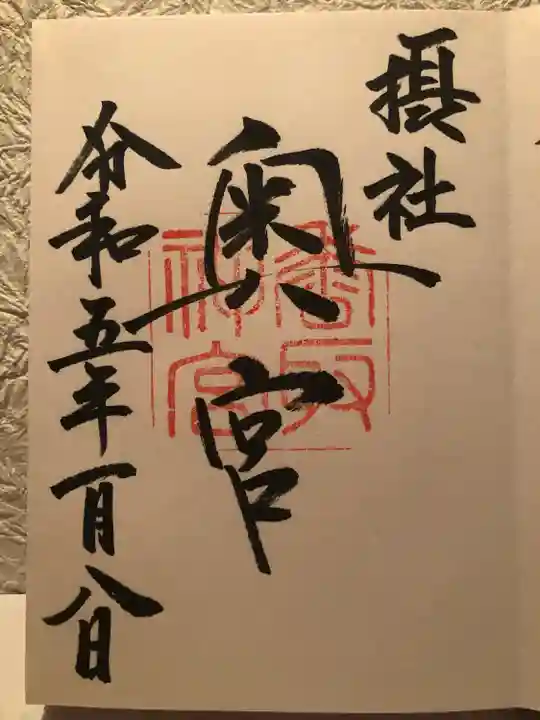 摂社
奥宮
香取
神宮
令和五年一月八日